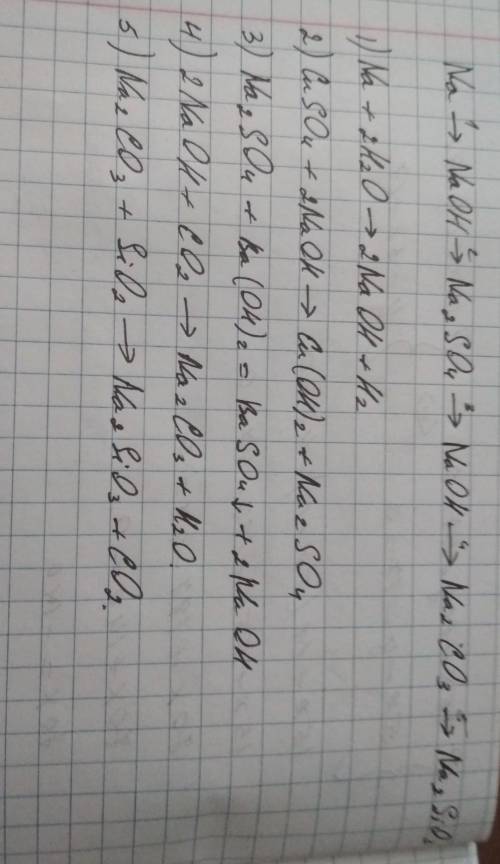 Na ¹→ NaOH ²→ Na₂SO₄ ³→ NaOH ⁴→ Na₂CO₃ ⁵→ Na₂SiO₃
1) Na + 2H₂O → 2NaOH + H₂
2) CuSO₄ + 2NaOH → Cu(OH)₂ + Na₂SO₄
3) Na₂SO₄ + Ba(OH)₂ = BaSO₄↓ + 2NaOH
4) 2NaOH + CO₂ → Na₂CO₃ + H₂O.
5) Na₂CO₃ + SiO₂ → Na₂SiO₃ + CO₂.